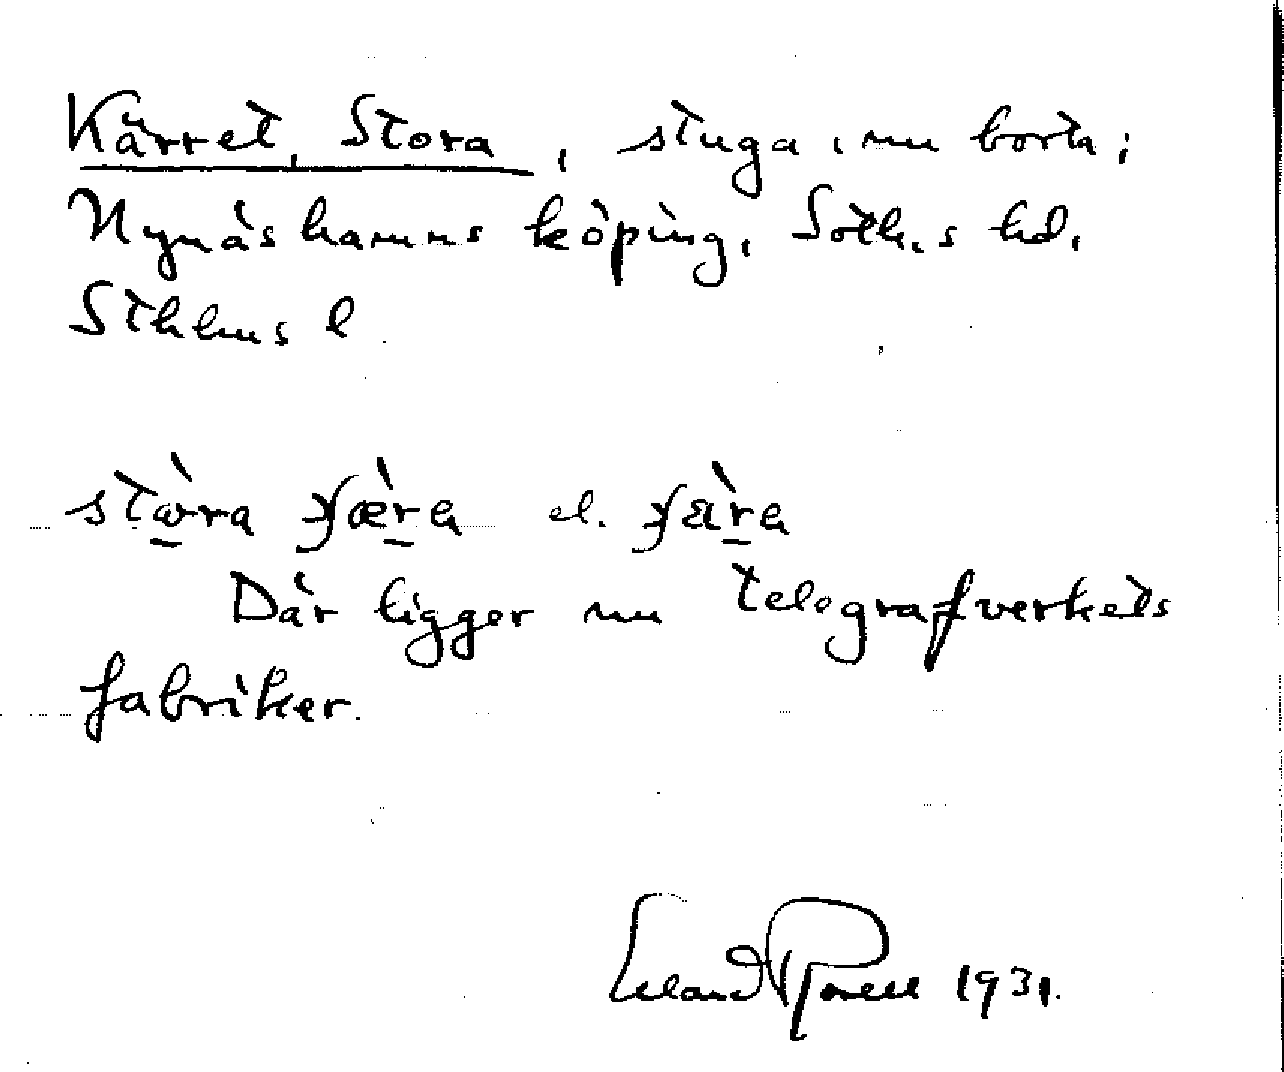 Kärret, Stora, stuga, nu borta;
Nynäshamns köping, Soth.s hd.
Sthlms l.
stòra ʃæ̀ra el. ʃä̀ra
Där ligger nu telegrafverkets
fabriker.
Erland Rosell 1931.